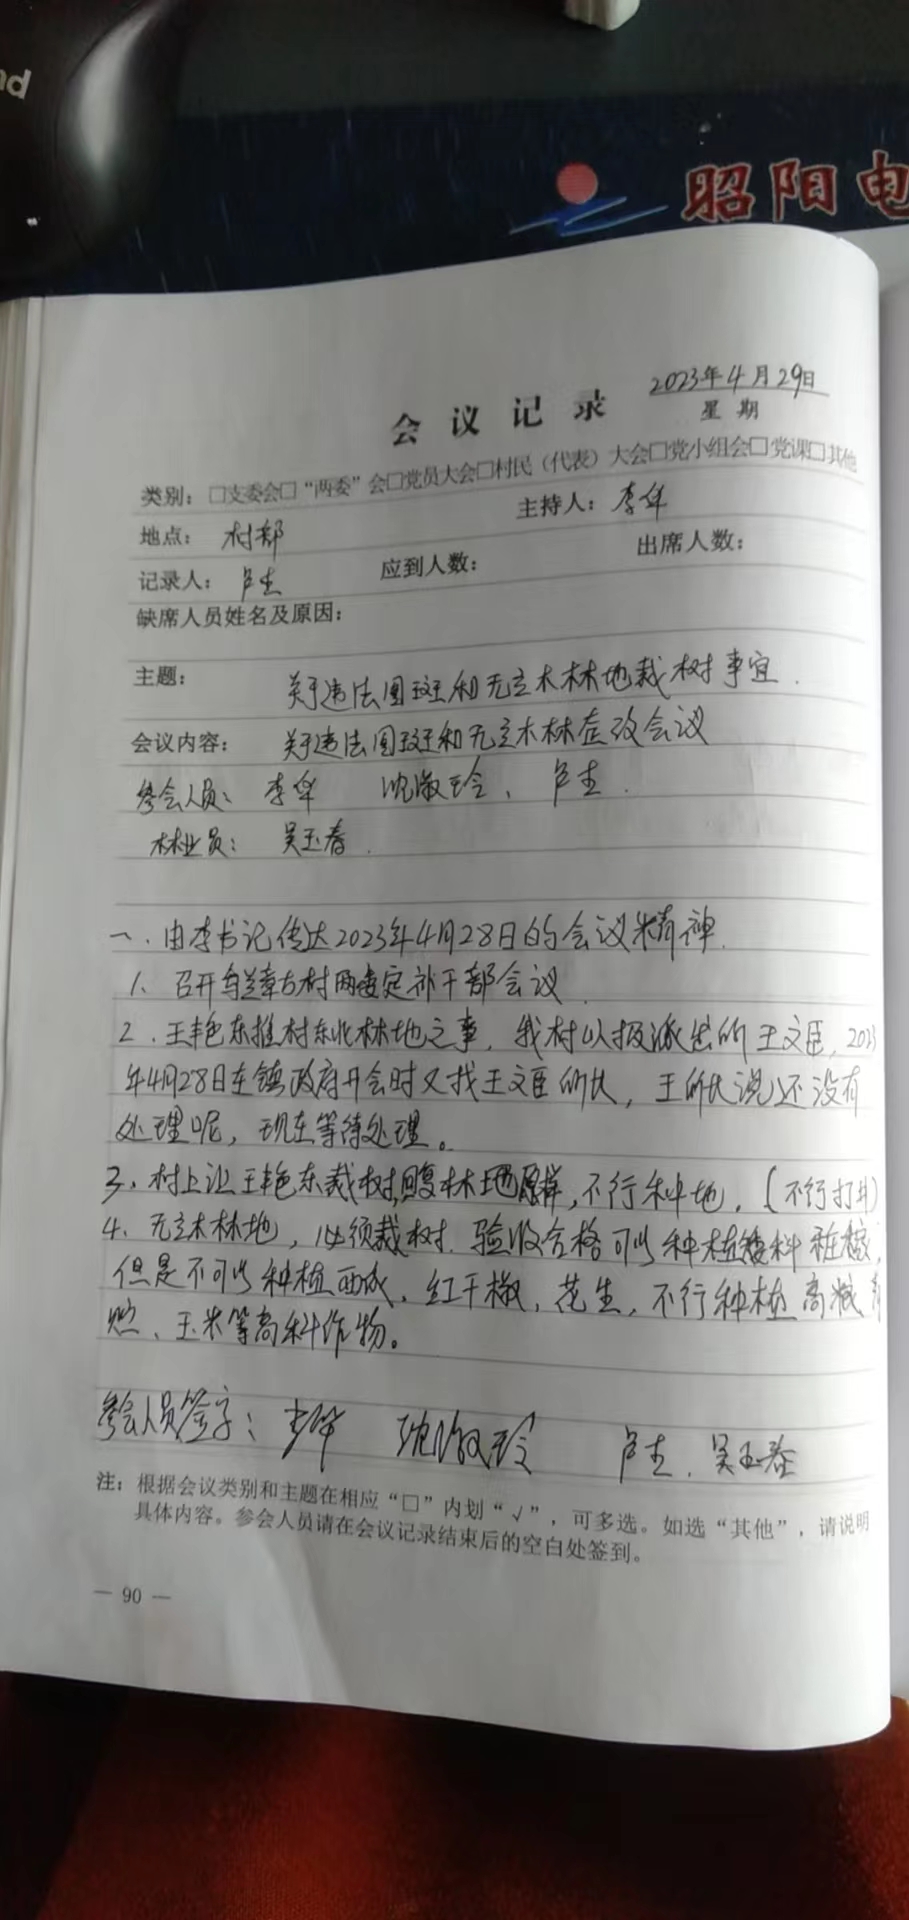 nd
昭阳电
2023年4月29日
会议记录 星期
类别：□支委会□“两委”会□党员大会□村民（代表）大会□党小组会□党课□其他
地点：村部 主持人：李华
记录人：卢志 应到人数： 出席人数：
缺席人员姓名及原因：
主题： 关于违法图斑和无立木林地栽树事宜.
会议内容： 关于违法图斑和无立木林查改会议
参会人员：李华 沈淑玲、卢志.
林业员：吴玉春.
一、由李书记传达2023年4月28日的会议精神.
1、召开乌兰章古村两委定补干部会议.
2、王艳东推村东北林地之事，我村以报派出所王文臣，2023
年4月28日在镇政府开会时又找王文臣所长，王所长说还没有
处理呢，现在等待处理。
3、村上让王艳东栽树，回复林地原样，不行种地，(不行打井)
4、无立木林地，必须栽树.验收合格可以种植矮科
但是不可以种植西成，红干椒，花生，不行种植高
、玉米等高科作物。
参会人员签字：李华 沈淑玲 卢志.吴玉春
注：根据会议类别和主题在相应“□”内划“√”，可多选。如选“其他”，请说明
具体内容。参会人员请在会议记录结束后的空白处签到。
— 90 —